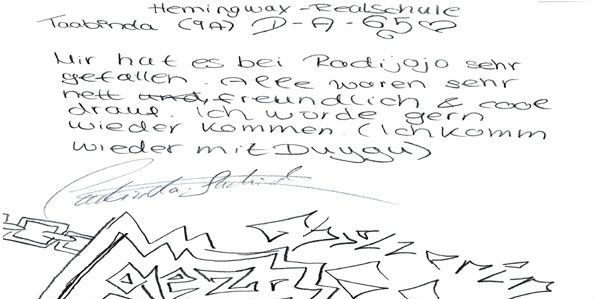 Hemingway-Realschule
Taabinda (9A) D-A-65♡
Mir hat es bei Radijojo sehr
gefallen. Alle waren sehr
nett und, freundlich & cool
drauf. Ich würde gern
wieder kommen. (Ich komm
wieder mit Duygu)